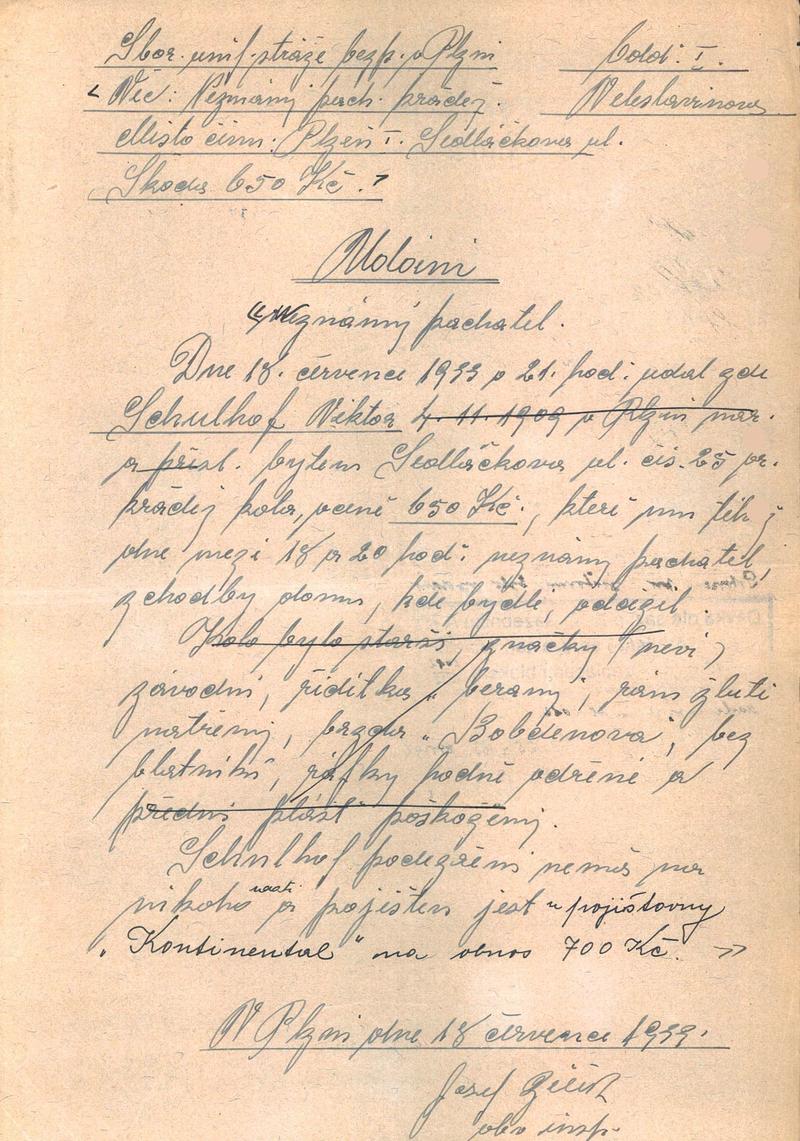 Sbor. unif. stráže bezp. v Plzni Odd: I.
Věc: Neznámý pach. krádež. Veleslavínova
Místo činu: Plzeň I. Sedláčkova ul.
Škoda 650 Kč.
Udání
Neznámý pachatel.
Dne 18. července 1933 v 21. hod: udal zde
Schulhof Viktor 4. 11. 1909 v Plzni nar.
a přísl. bytem Sedláčkova ul. čís. 25 pr.
krádež kola, v ceně 650 Kč., které mu téhož
dne mezi 18 a 20 hod: neznámý pachatel,
z chodby domu, kde bydlí, odcizil.
Kolo bylo starší, značky (neví)
závodní, řidítka „berany", rám žlutě
natřený, brzda „Bobdenova", bez
blatníků, ráfky hodně odřené a
přední plášť poškozený.
Schulhof podezření nemá na
nikoho a pojištěn jest u pojišťovny
„Kontinental" na obnos 700 Kč.
V Plzni dne 18 července 1933.
Josef
obv insp.